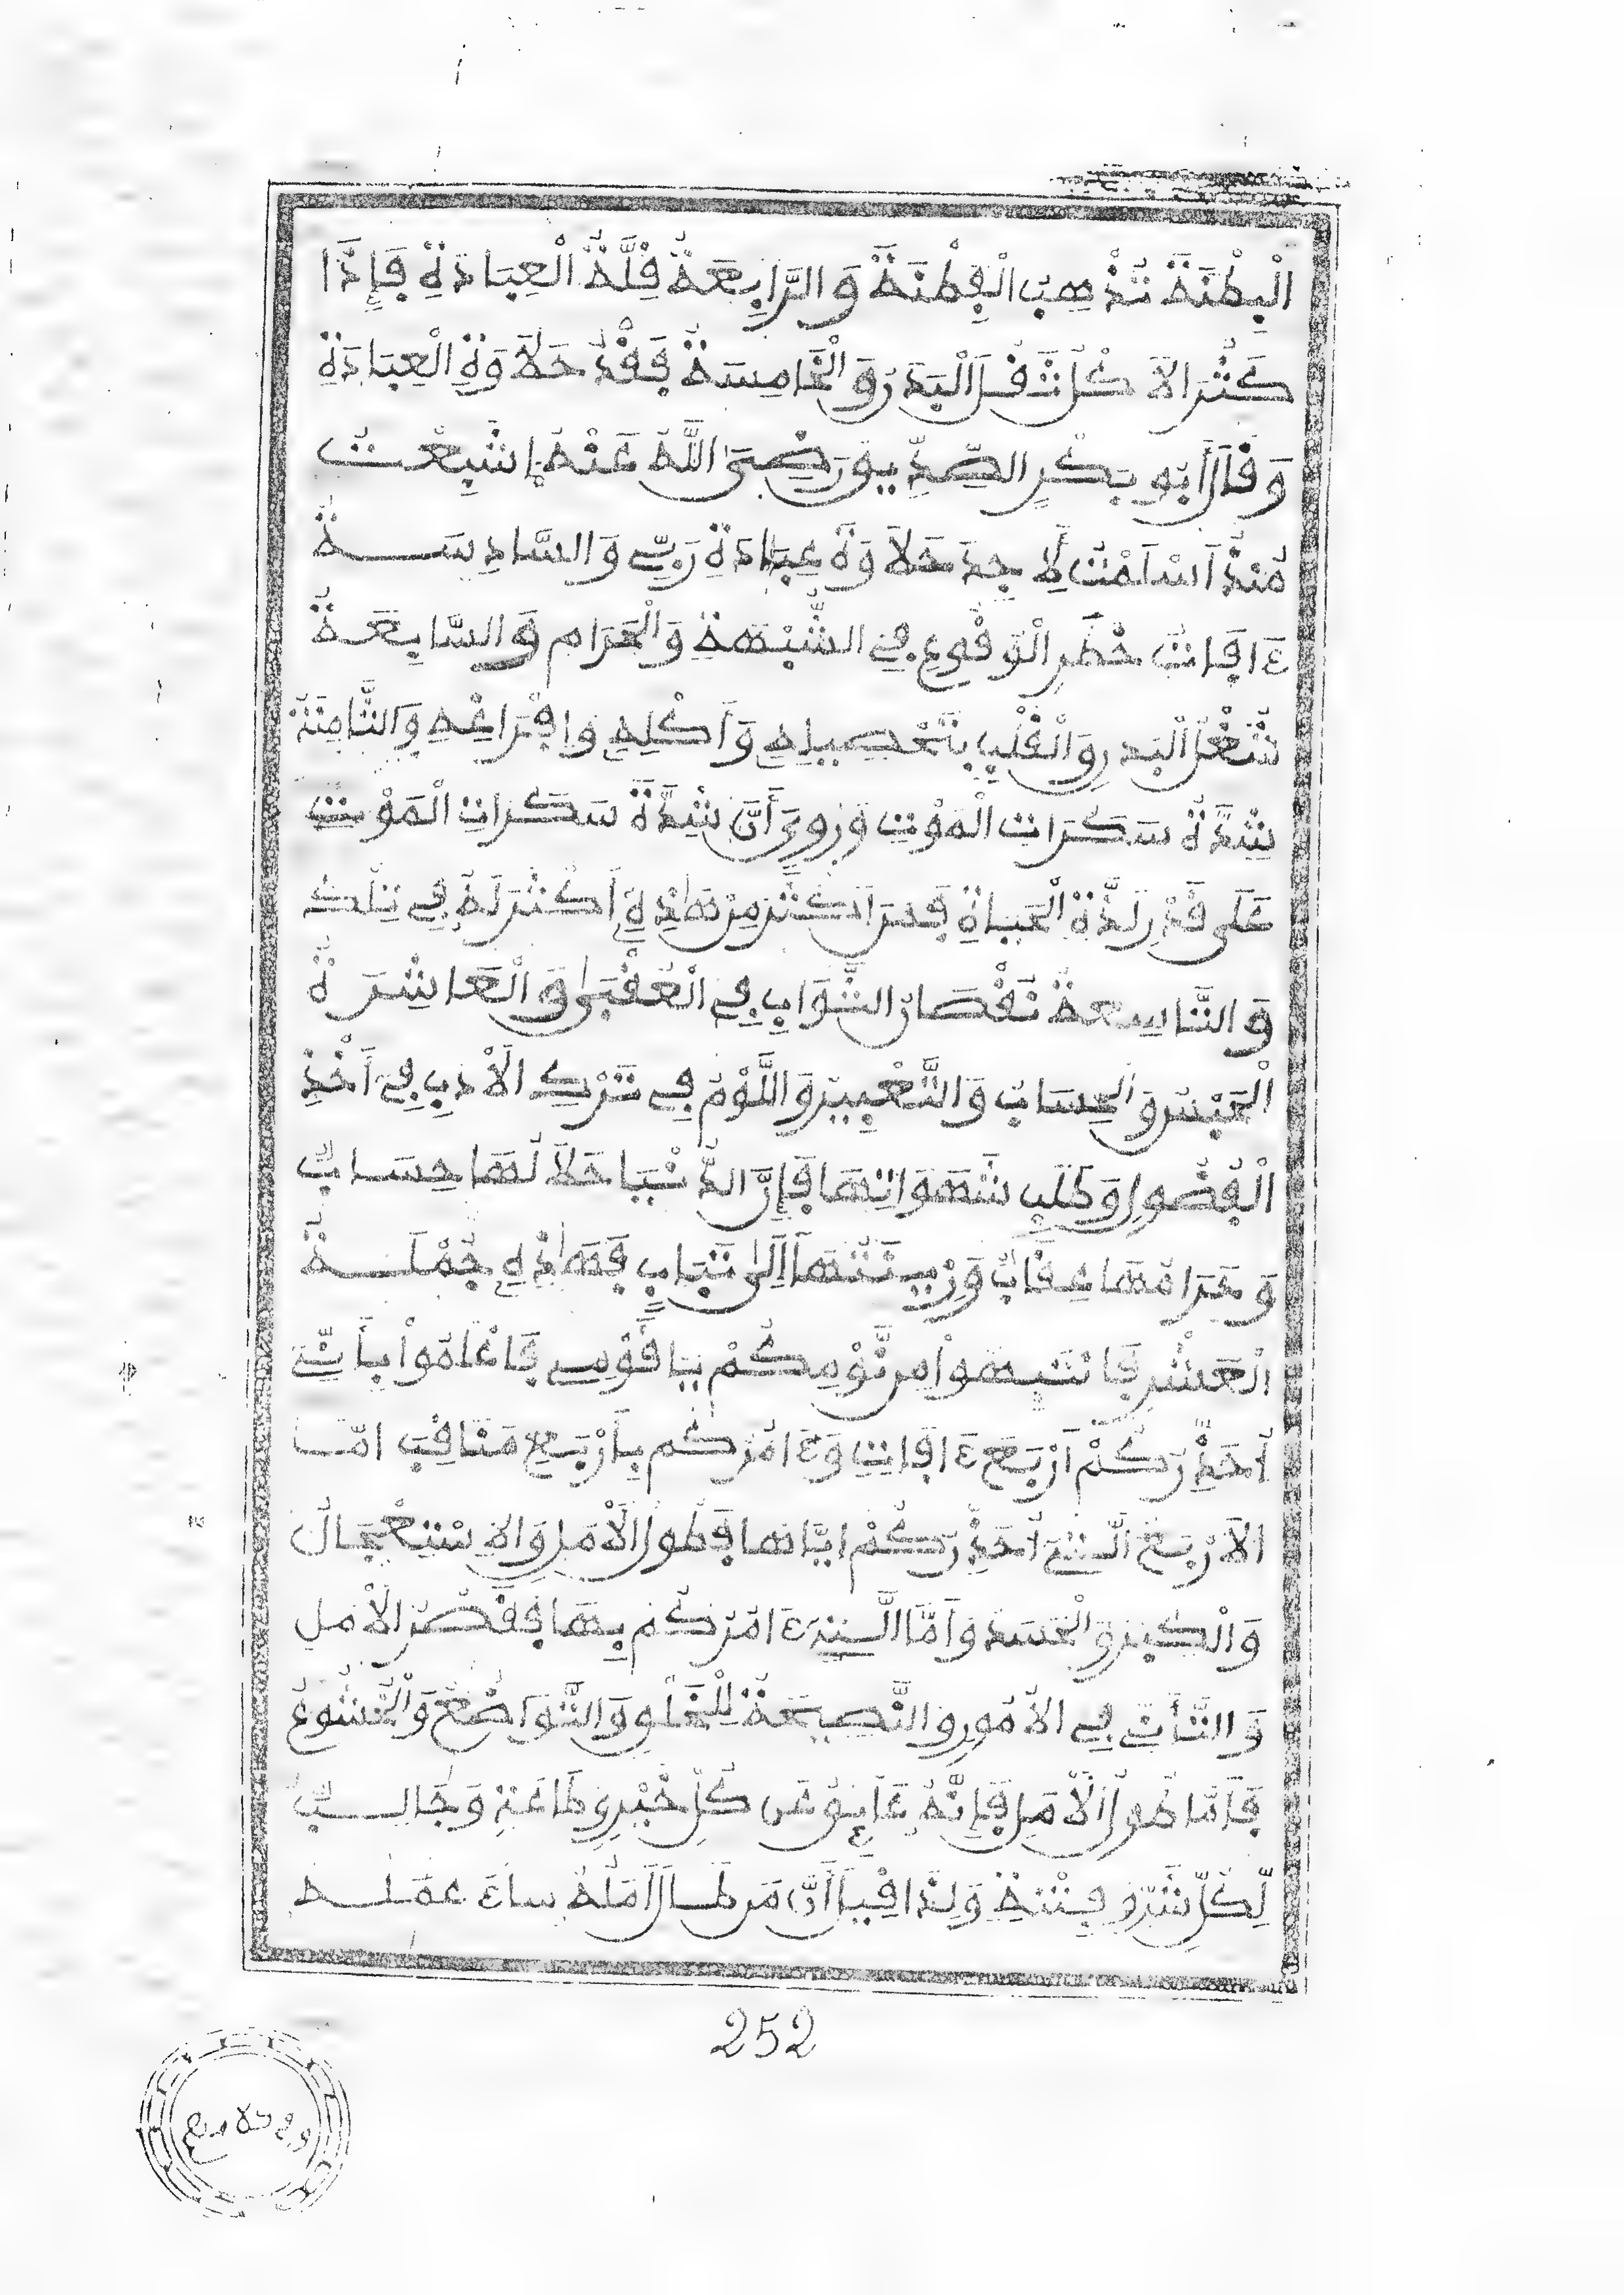 الْبِطْنَةَ تُذْهِبُ الْفِطْنَةَ وَالرَّابِعَةُ قِلَّةُ الْعِبَادَةِ فَإِذَا
كَثُرَ الَاكْلُ ثَقُلَ الْبَدَنُ وَالْخَامِسَةُ فَقْدُ حَلَاوَةِ الْعِبَادَةِ
وَقَالَ أَبُو بَكْرٍ الصِّدِّيقُ رَضِيَ اللَّهُ عَنْهُ إِ شَبِعْتُ
مُنْذُ اَسْلَمْتُ لِأَجِدَ حَلَاوَةَ عِبَادَةِ رَبِّي وَالسَّادِسَةُ
ءَافَاتُ خَطَرِ الْوُقُوعِ فِي الشُّبْهَةِ وَالْحَرَامِ وَالسَّابِعَةُ
شُغْلُ الْبَدَنِ وَالْقَلْبِ بِتَحْصِيلِهِ وَأَكْلِهِ وَإِفْرَاغِهِ وَالثَّامِنَةُ
شِدَّةُ سَكَرَاتِ الْمَوْتِ وَرُوِيَ أَنَّ شِدَّةَ سَكَرَاتِ الْمَوْتِ
عَلَى قَدْرِ لَذَّةِ الْحَيَاةِ فَمَنَ اَكْثَرَ مِنْ هَٰذِهِ أَكْثَرَ لَهُ فِي تِلْكَ
وَالتَّاسِعَةُ نُقْصَانُ الثَّوَابِ فِي الْعُقْبَىٰ وَالْعَاشِرَةُ
الْحَبْسُ وَالْحِسَابُ وَالتَّعْيِيرُ وَاللَّوْمُ فِي تَرْكِ الْأَدَبِ فِي أَخْذِ
الْفُضُولِ وَطَلَبِ شَهَوَاتِهَا فَإِنَّ الدُّنْيَا حَلَالُهَا حِسَابٌ
وَحَرَامُهَا عِقَابٌ وَزِينَتُهَا إِلَىٰ تَبَابٍ فَهَٰذِهِ جُمْلَةُ
الْعَشْرِ فَانْتَبِهُواْ مِن نَّوْمِكُمْ يَا قَوْمِ فَاعْلَمُواْ بِأَنِّي
أُحَذِّرُكُمْ اَرْبَعَ ءَافَاتٍ وَءَامُرُكُم بِأَرْبَعِ مَنَاقِبَ امَّا
الَارْبَعُ الَّتِي أُحَذِّرُكُمْ إيَّاهَا فَطُولُ الْأَمَلِ وَالِاسْتِعْجَالُ
وَالْكِبْرُ وَالْحَسَدُ وَأَمَّا الَّتِي ءَامُرُكُم بِهَا فَقَصْرُ الْأَمَلِ
وَالتَّأَنِّي فِي الْأُمُورِ وَالنَّصِيحَةُ لِلْخَلْقِ وَالتَّوَاضُعُ وَالْخُشُوعُ
فَأَمَّا طُولُ الْأَمَلِ فَإِنَّهُ عَائِقٌ عَن كُلِّ خَيْرٍ وَطَاعَةٍ وَجَالِبٌ
لِّكُلِّ شَرٍّ وَفِتْنَةٍ وَلِذَا قِيلَ أَنَّ مَن طَالَ أَمَلُهُ سَاءَ عَمَلُه
252